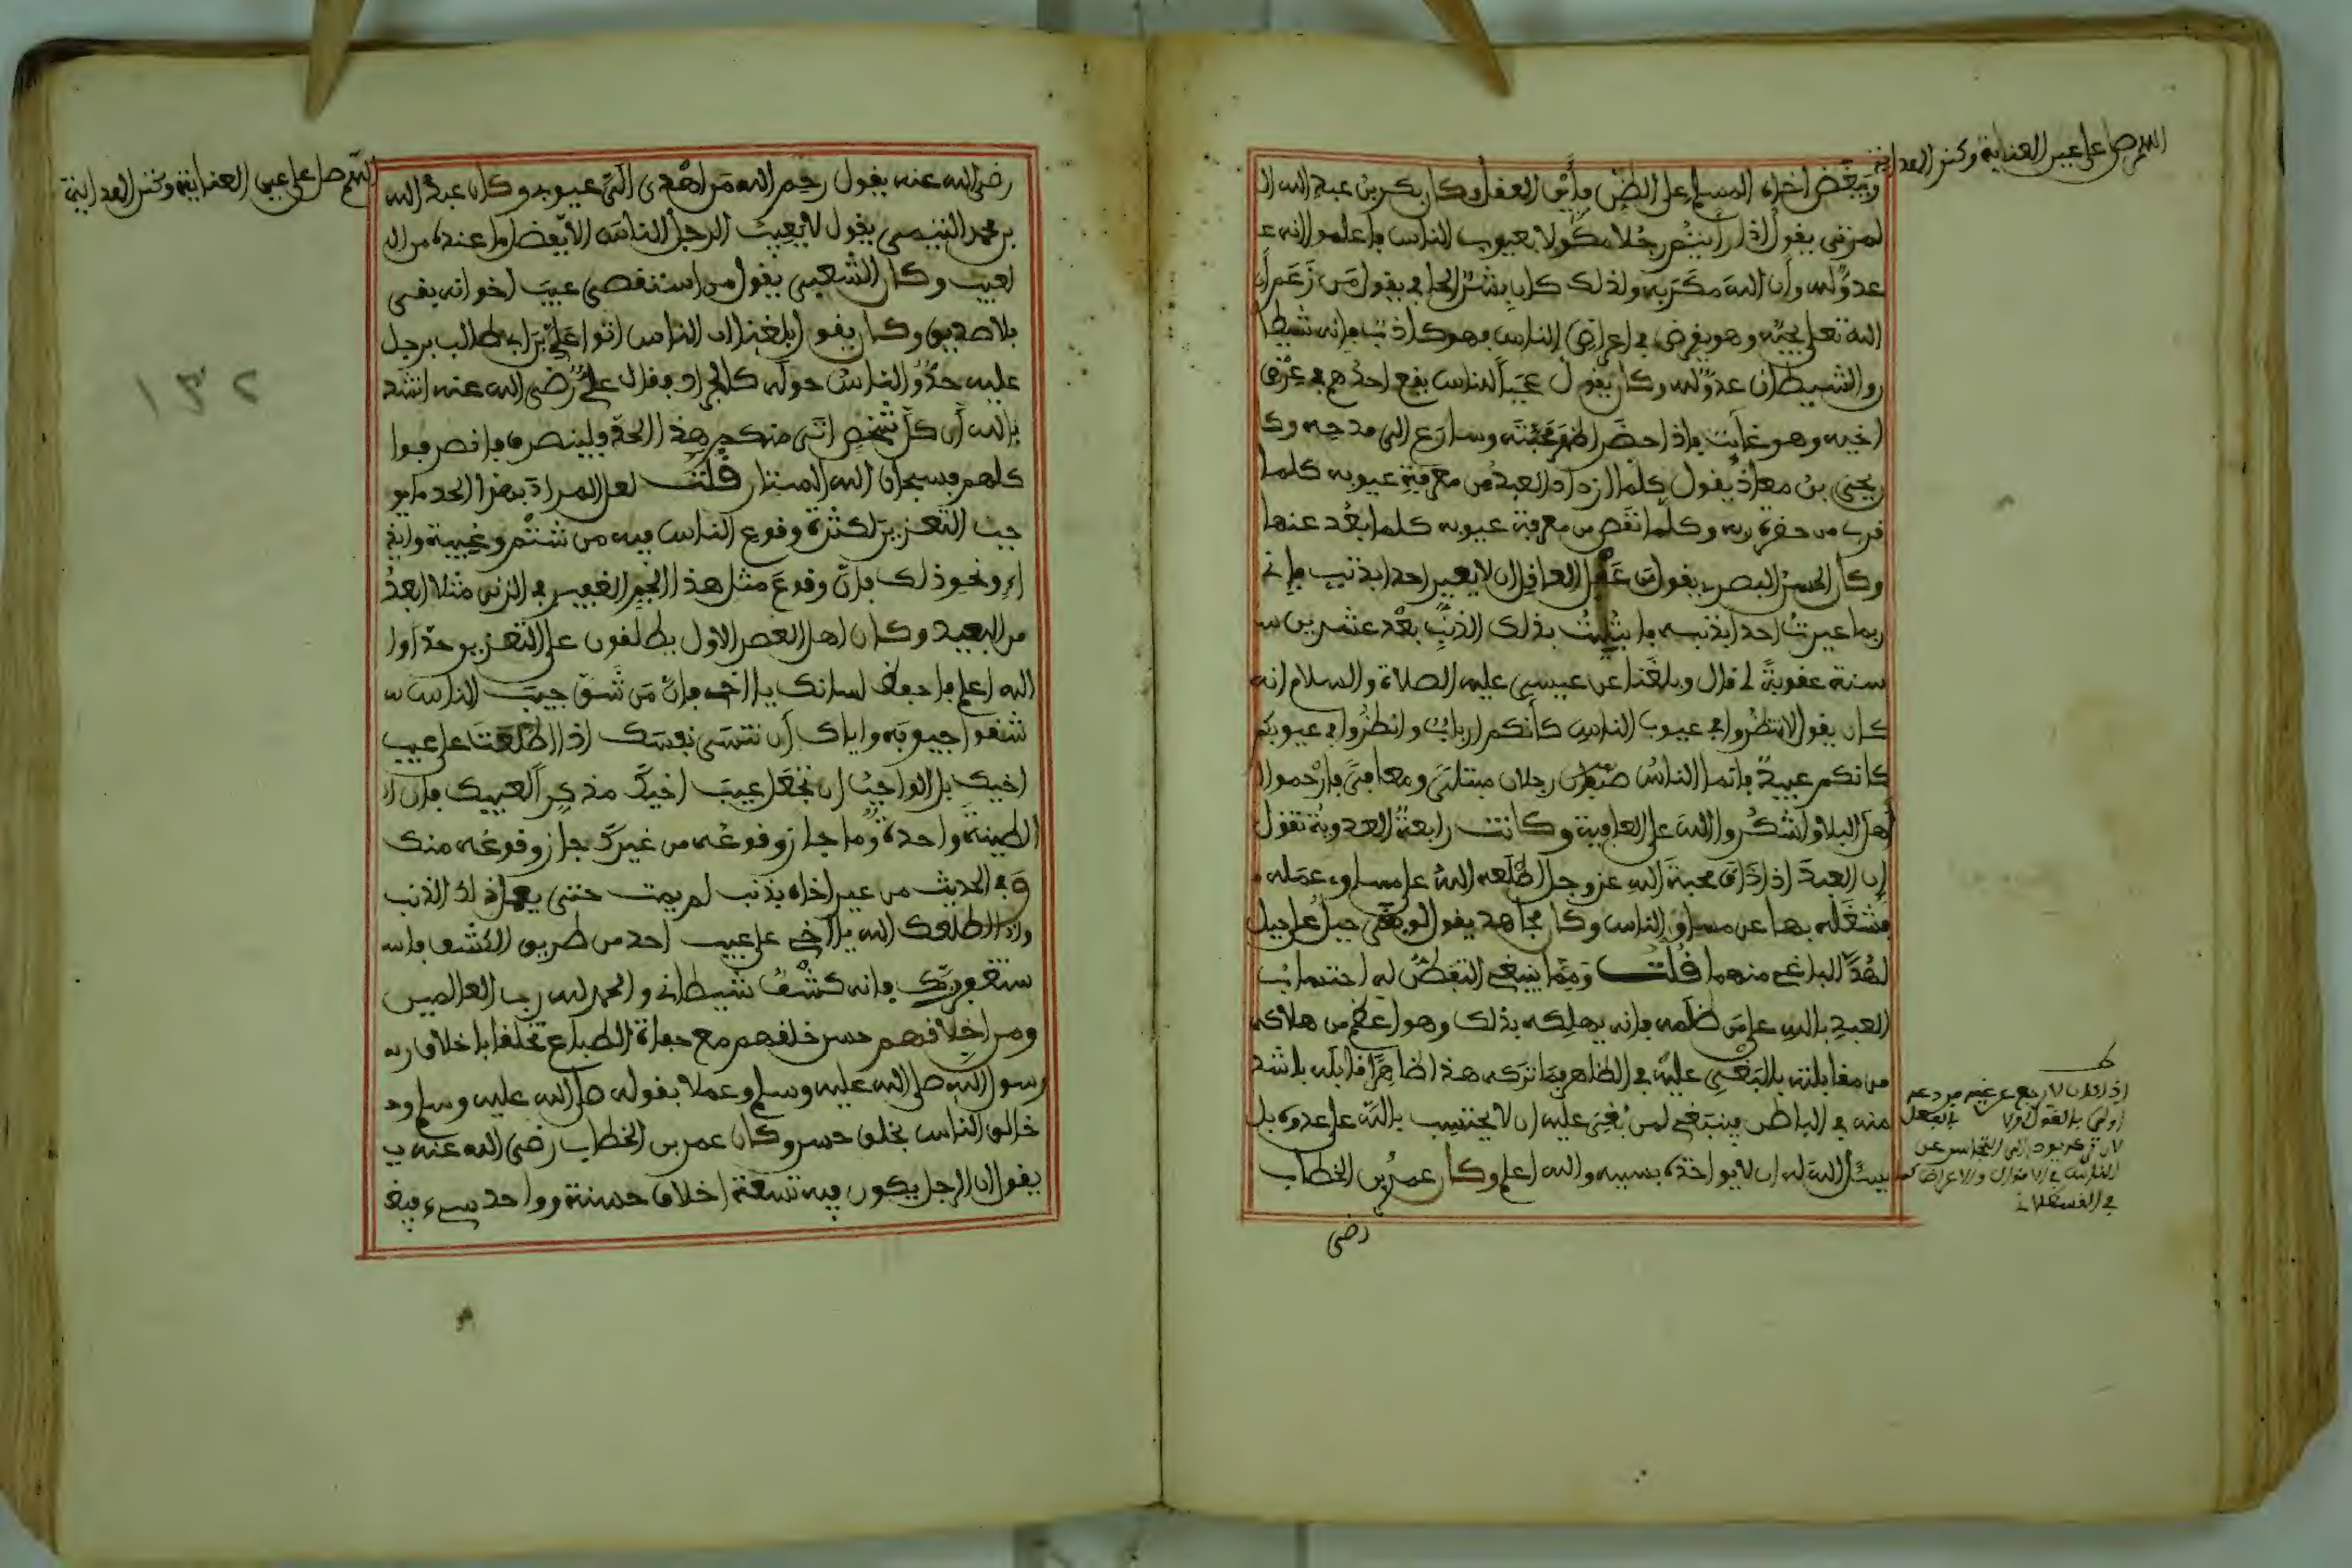 اللهم صل على عين العناية وكنز الهداية
ويبغض أخاه المسلم على الظن فأين العقل وكان بكر بن عبد الله ال
لمزني يقول إذا رأيتم رجلا موكولا بعيوب الناس فاعلموا أنه ع
عدو لله وأن الله مكر به ولذلك كان بشر الحافي يقول من زعم أن
الله تعلى يحبه وهو يقرض في أعراض الناس فهو كاذب فإنه شيطا
والشيطان عدو لله وكان يقول عجبا للناس يقع أحدهم في عرض
أخيه وهو غائب فإذا حضر أظهر محبته وسارع إلى مدحه وكا
يحيى بن معاذ يقول كلما ازداد العبد من معرفة عيوبه كلما
قرب من حضرة ربه وكلما نقص من معرفة عيوبه كلما بعد عنها
وكان الحسن البصري يقول من عقل العاقل أن لا يعير أحدا بذنب فإني
ربما عيرت أحدا بذنبه فابتليت بذلك الذنب بعد عشرين س
سنة عقوبة لي قال وبلغنا عن عيسى عليه الصلاة والسلام أنه
كان يقول لا تنظروا في عيوب الناس كأنكم أرباب وانظروا في عيوبكم
كأنكم عبيد فإنما الناس صنفان رجلان مبتلى ومعافى فارحموا ا
أهل البلاء واشكروا الله على العافية وكانت رابعة العدوية تقول
إن العبد إذا ذاق محبة الله عز وجل أطلعه الله على مساوي عمله ف
فشغله بها عن مساوي الناس وكان مجاهد يقول لو بغى جبل على جبل
لهد الباغي منهما قلت ومما ينبغي التفطن له احتساب
العبد بالله على من ظلمه فإنه يهلكه بذلك وهو أعظم من هلاكه
من مقابلته بالبغي عليه في الظاهر فما تركه هذا ظاهرا قابله بأشد
منه في الباطن فينبغي لمن بغي عليه أن لا يحتسب بالله على عدوه بل
يسأل الله له أن لا يؤاخذه بسببه والله أعلم وكان عمر بن الخطاب
رضي
اللهم صل على عين العناية وكنز الهداية
رضي الله عنه يقول رحم الله من أهدى إلي عيوبه وكان عبد الله
بن محمد التيمي يقول لا يعيب الرجل الناس إلا بفضل ما عنده من ال
لعيب وكان الشعبي يقول من استقصى عيب إخوانه بقي
بلا صديق وكان يقول بلغنا أن الناس أتوا علي بن أبي طالب برجل
عليه حد والناس حوله كالجراد فقال علي رضي الله عنه أنشد
بالله أن كل شخص أتى منكم هذا الحد فلينصرف فانصرفوا
كلهم فسبحان الله الستار قلت لعل المراد بهذا الحد ما يو
جب التعزير لكثرة وقوع الناس فيه من شتم وغيبة وايذ
اء ونحو ذلك فإن وقوع مثل هذا الجم الغفير في الزنى مثلا أبعد
من البعيد وكان أهل العصر الأول يطلقون على التعزير حدا وا
الله أعلم فاحفظ لسانك يا أخي فإن من شق جيب الناس ش
شقوا جيوبه وإياك أن تنسى نفسك إذا اطلعت على عيب
أخيك بل الواجب أن تجعل عيب أخيك مذكرا لعيبك فإن ا
الطينة واحدة وما جاز وقوعه من غيرك جاز وقوعه منك
وفي الحديث من عير أخاه بذنب لم يمت حتى يعمل ذلك الذنب
وإذا أطلعك الله يا أخي على عيب أحد من طريق الكشف فاس
ستغفر ربك فإنه كشف شيطاني والحمد لله رب العالمين
ومن أخلاقهم حسن خلقهم مع جفاة الطباع تخلقا بأخلاق ر
رسول الله صلى الله عليه وسلم وعملا بقوله صلى الله عليه وسلم و
خالق الناس بخلق حسن وكان عمر بن الخطاب رضي الله عنه ي
يقول إن الرجل يكون فيه تسعة أخلاق حسنة وواحد سيء فيغ
١٣٢